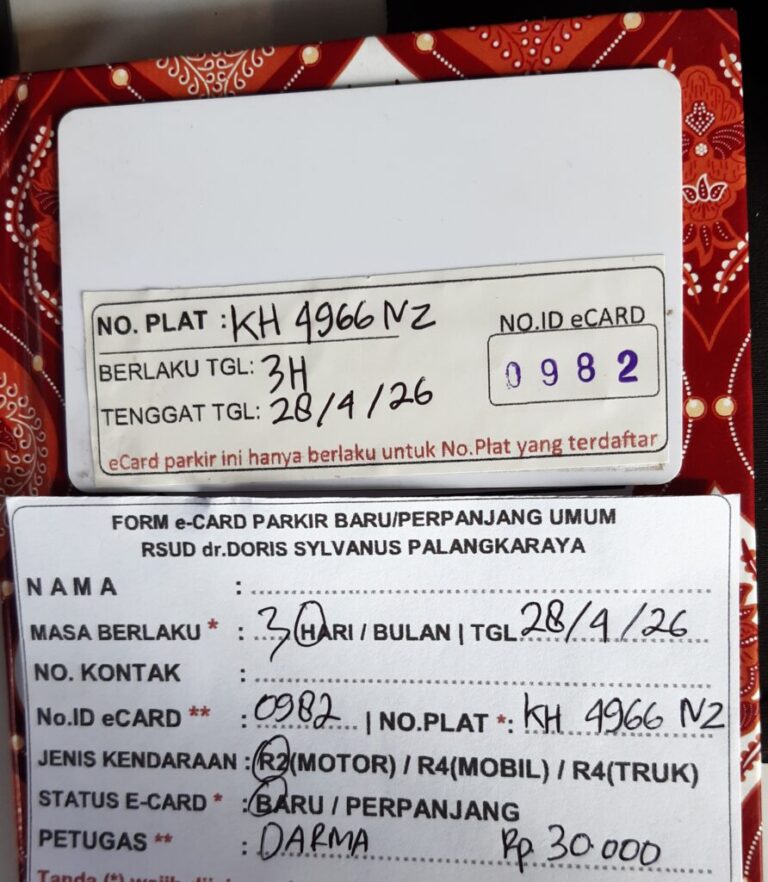 NO. PLAT : KH 4966 NZ
NO.ID eCARD
BERLAKU TGL: 3H
0982
TENGGAT TGL: 28/4/26
eCard parkir ini hanya berlaku untuk No.Plat yang terdaftar
FORM e-CARD PARKIR BARU/PERPANJANG UMUM
RSUD dr.DORIS SYLVANUS PALANGKARAYA
NAMA :
MASA BERLAKU * : 3 HARI / BULAN | TGL 28/4/26
NO. KONTAK :
No.ID eCARD ** : 0982 | NO.PLAT *: KH 4966 NZ
JENIS KENDARAAN : R2(MOTOR) / R4(MOBIL) / R4(TRUK)
STATUS E-CARD * : BARU / PERPANJANG
PETUGAS ** : DARMA Rp 30.000
Tanda (*) wajib